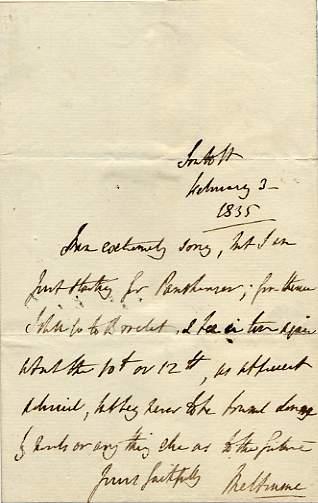 South St
February 3 –
1835
I am extremely sorry, but I am
just starting for Panshanger; from thence
I shall go to Brocket, & be in town again
about the 10th or 12th, as at present
advised, but beg never to be bound down
by words or any thing else as to the future
Yours faithfully
Melbourne